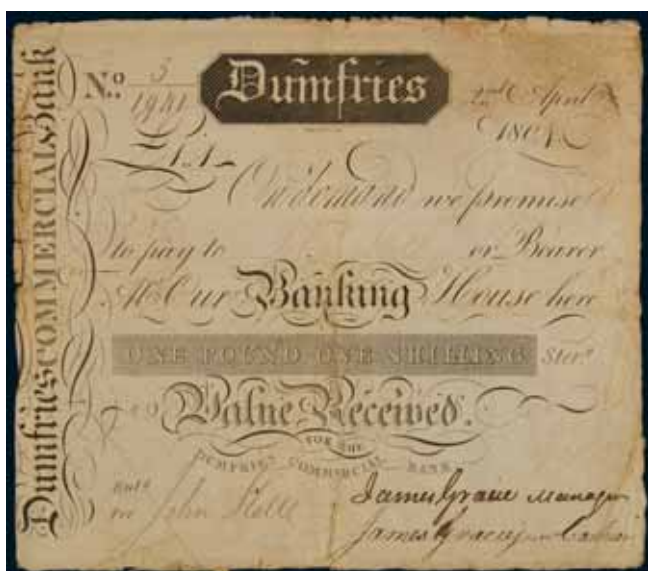 Dumfries COMMERCIAL Bank
No. 3
1941
Dumfries
2nd April
180
£1.1
On demand we promise
to pay to or Bearer
At Our Banking House here
ONE POUND ONE SHILLING Ster.
Value Received.
FOR THE
DUMFRIES COMMERCIAL BANK
John
James Gracie Manager
James Gracie